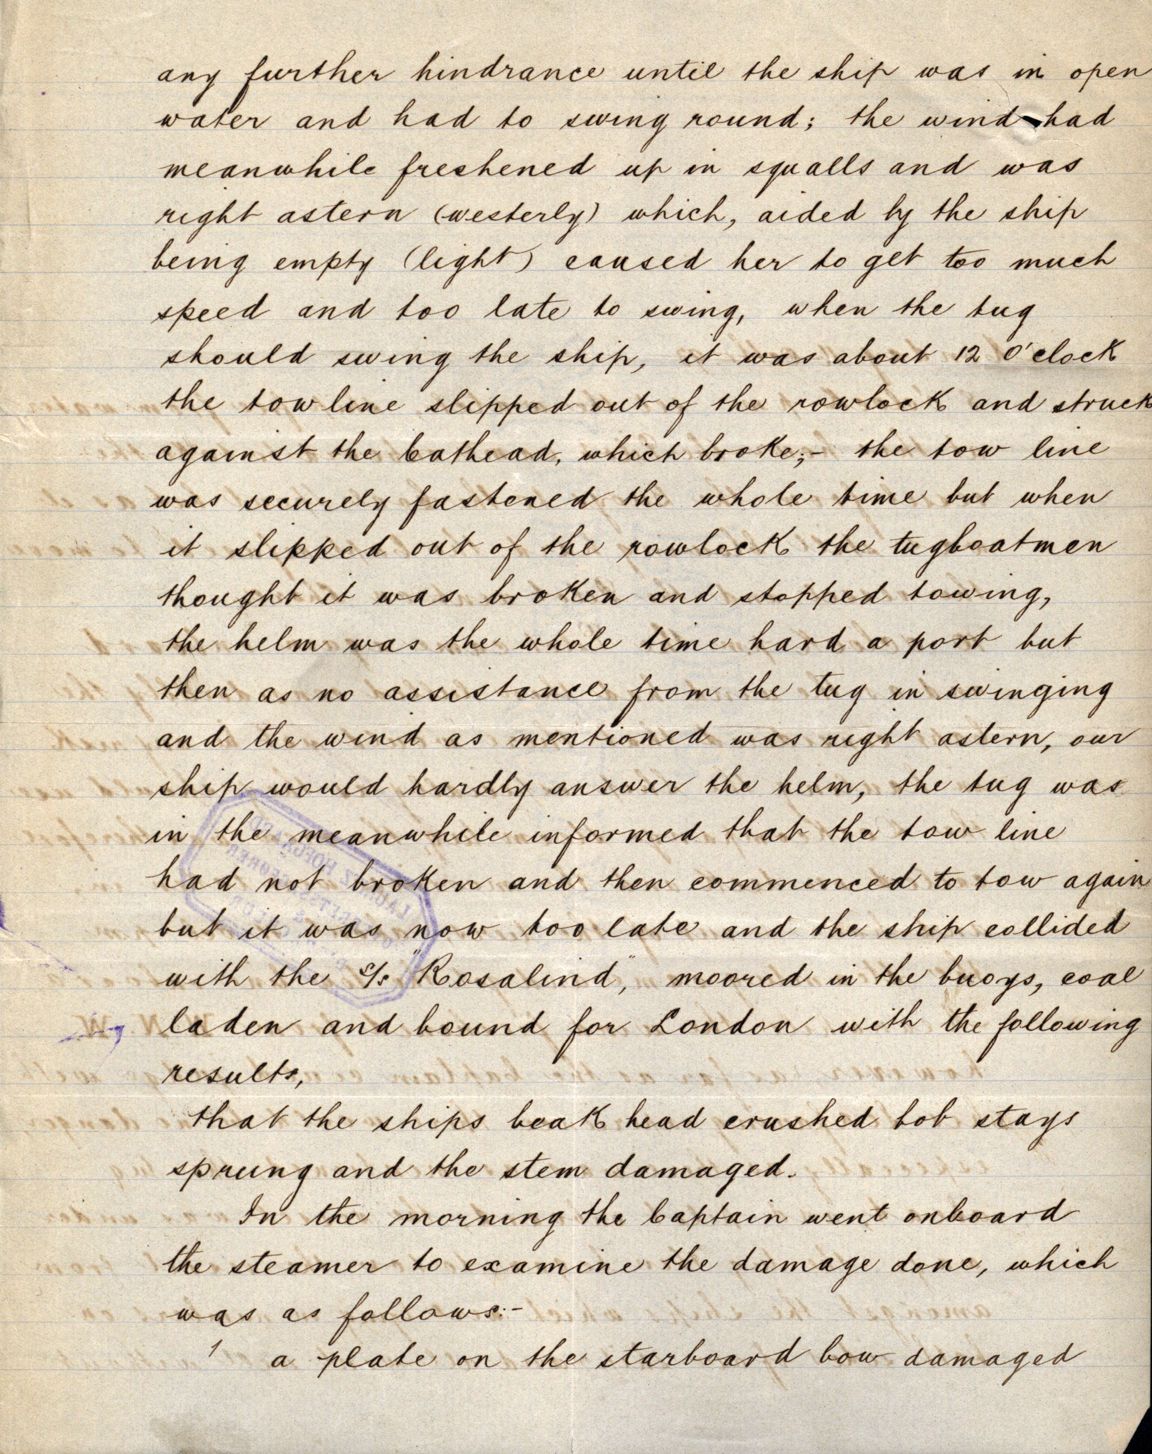 any further hindrance until the ship was in open
water and had to swing round; the wind had
meanwhile freshened up in squalls and was
right astern (westerly) which, aided by the ship
being empty (light) caused her to get too much
speed and too late to swing, when the tug
should swing the ship, it was about 12 O'clock
the tow line slipped out of the rowlock and struck
against the Cathead, which broke;- the tow line
was securely fastened the whole time but when
it slipped out of the rowlock the tugboatmen
thought it was broken and stopped towing,
the helm was the whole time hard a port but
then as no assistance from the tug in swinging
and the wind as mentioned was right astern, our
ship would hardly answer the helm, the tug was
in the meanwhile informed that the tow line
had not broken and then commenced to tow again
but it was now too late and the ship collided
with the s/s "Rosalind", moored in the buoys, coal
laden and bound for London with the following
results,
that the ships beak head crushed bob stays
sprung and the stem damaged.
In the morning the Captain went onboard
the steamer to examine the damage done, which
was as follows:-
1 a plate on the starboard bow damaged